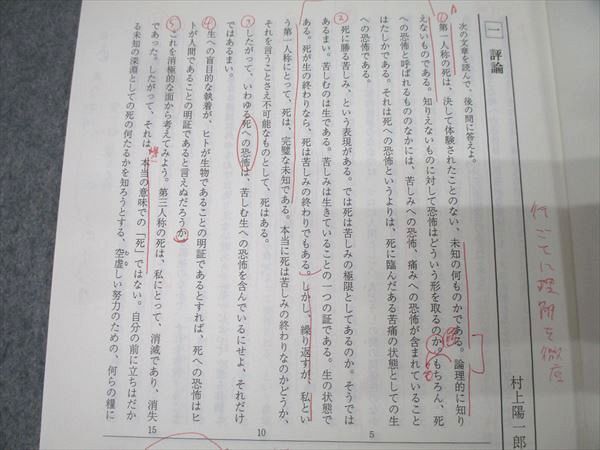 一 評論
村上陽一郎
次の文章を読んで、後の問に答えよ。
① 第一人称の死は、決して体験されたことのない、未知の何ものかである。論理的に知り
えないものである。知りえないものに対して恐怖はどういう形を取るのか。もちろん、死
への恐怖と呼ばれるもののなかには、苦しみへの恐怖、痛みへの恐怖が含まれていること
はたしかである。それは死への恐怖というよりは、死に臨んだある苦痛の状態としての生
への恐怖である。
5
② 死に勝る苦しみ、という表現がある。では死は苦しみの極限としてあるのか。そうでは
あるまい。苦しむのは生である。苦しみは生きていることの一つの証である。生の状態で
ある。死が生の終わりなら、死は苦しみの終わりでもある。しかし、繰り返すが、私とい
う第一人称にとって、死は、完璧な未知である。本当に死は苦しみの終わりなのかどうか、
それを言うことさえ不可能なものとして、死はある。
10
③ したがって、いわゆる死への恐怖は、苦しむ生への恐怖を含んでいるにせよ、それだけ
ではあるまい。
④ 生への盲目的な執着が、ヒトが生物であることの明証であるとすれば、死への恐怖はヒ
トが人間であることの明証であると言えぬだろうか。
⑤ これを消極的な面から考えてみよう。第三人称の死は、私にとって、消滅であり、消失
であった。したがって、それは、本当の意味での「死」ではない。自分の前に立ちはだか
15
る未知の深淵としての死の何たるかを知ろうとする、空虚しい努力のための、何らの糧に